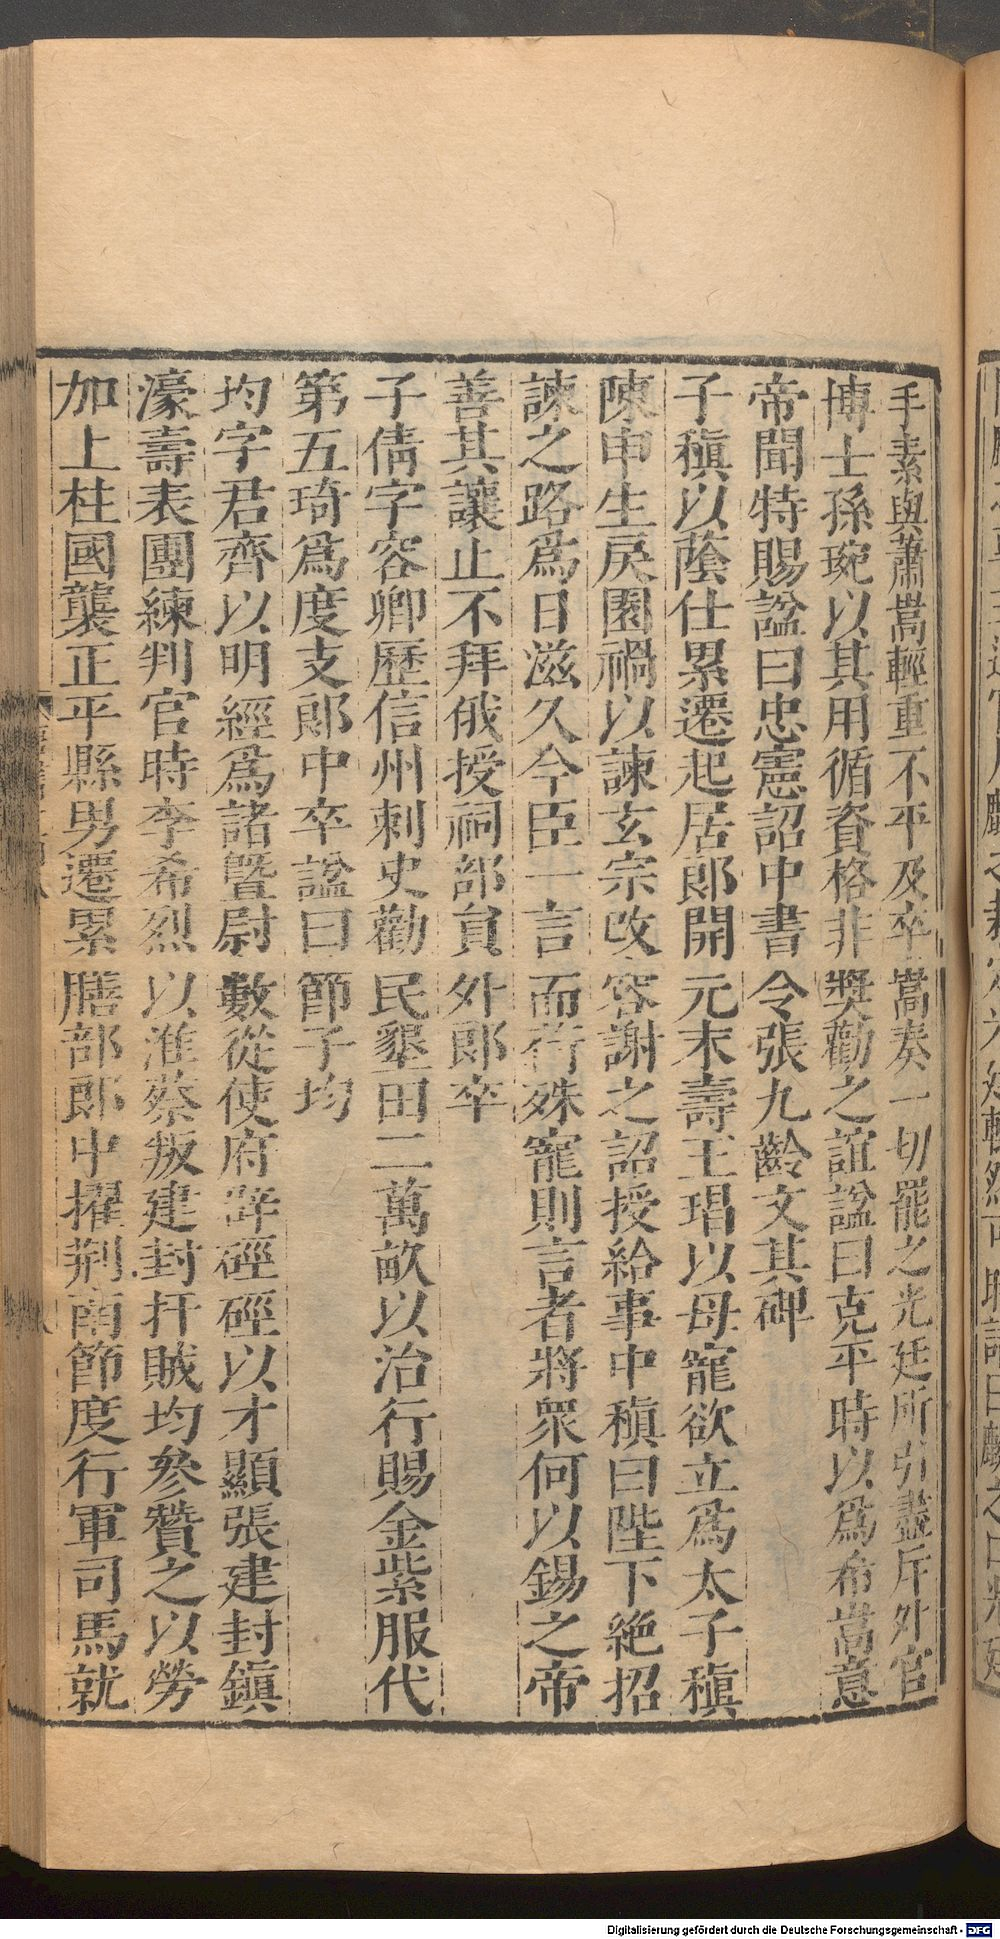 手素與蕭嵩輕重不平及卒嵩奏一切罷之光廷所引盡斥外官
博士孫琬以其用循資格非獎勸之誼諡曰克平時以爲希嵩意
帝聞特賜諡曰忠憲詔中書令張九齡文其碑
子稹以蔭仕累遷起居郎開元末壽王瑁以母寵欲立爲太子稹
陳申生戾園禍以諫玄宗改容謝之詔授給事中稹曰陛下絶招
諫之路爲日滋久今臣一言而荷殊寵則言者將衆何以錫之帝
善其讓止不拜俄授祠部員外郎卒
子倩字容卿歷信州刺史勸民墾田二萬畝以治行賜金紫服代
第五琦爲度支郎中卒諡曰節子均
均字君齊以明經爲諸曁尉數從使府辟硜硜以才顯張建封鎮
濠壽表團練判官時李希烈以淮蔡叛建封扞賊均參贊之以勞
加上柱國襲正平縣男遷累膳部郎中擢荆南節度行軍司馬就
Digitalisierung gefördert durch die Deutsche Forschungsgemeinschaft - DFG